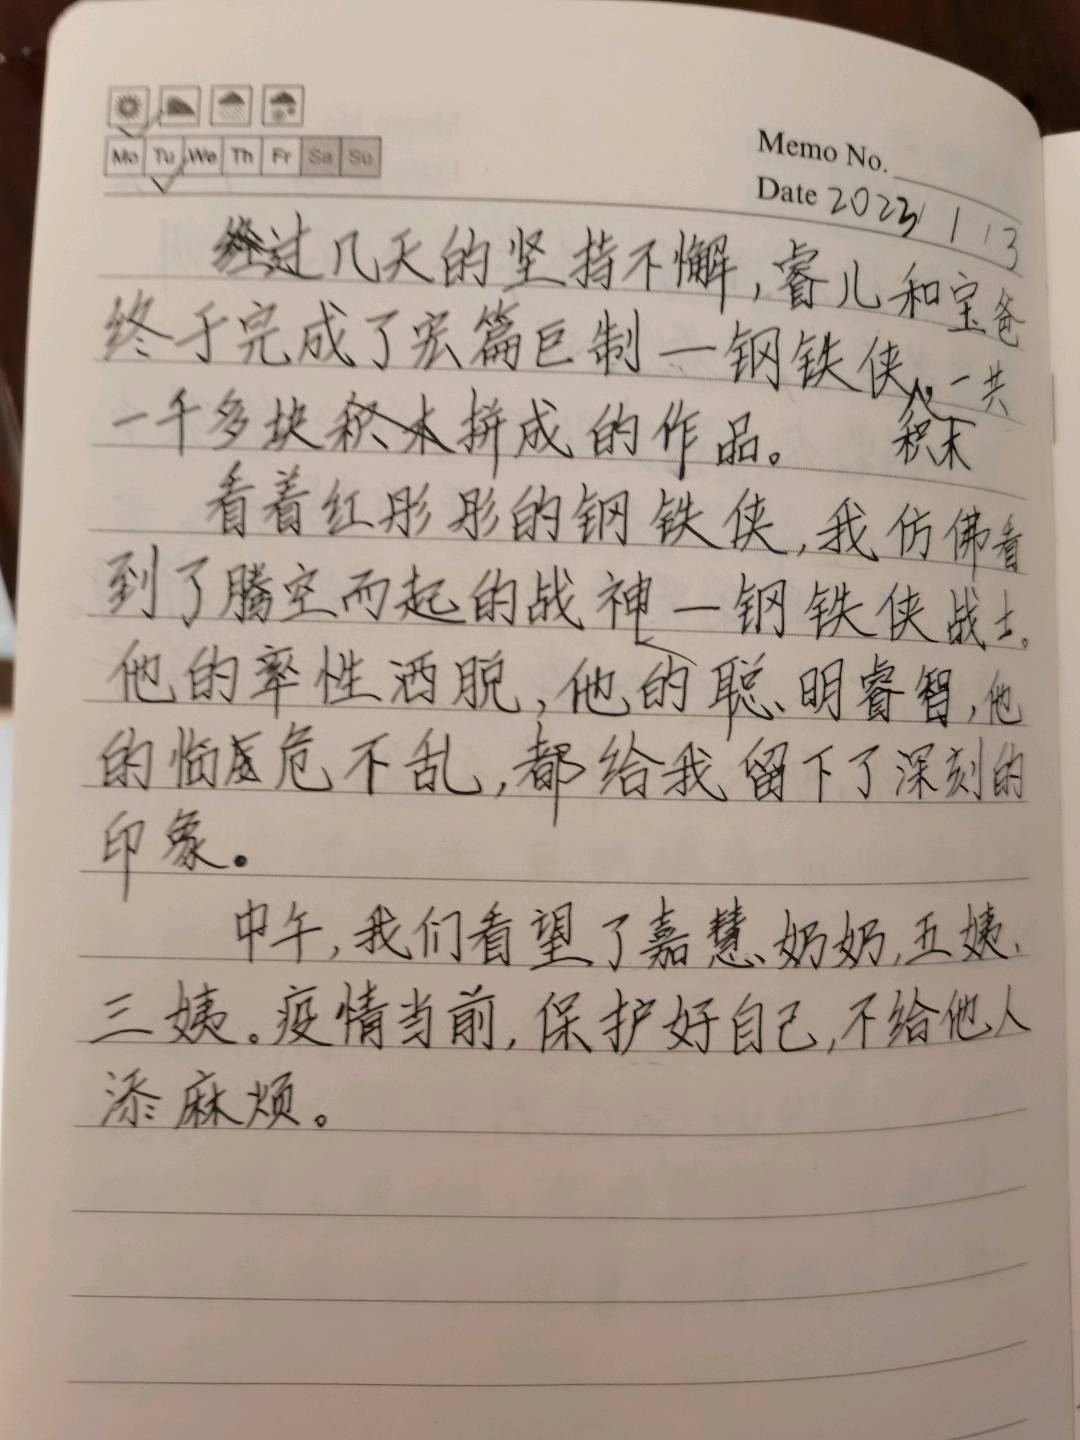 Mo Tu We Th Fr Sa Su
Memo No.
Date 2023 1 13
经过几天的坚持不懈，睿儿和宝爸
终于完成了宏篇巨制一钢铁侠积木。一共
一千多块拼成的作品。
看着红彤彤的钢铁侠，我仿佛看
到了腾空而起的战神一钢铁侠战士。
他的率性洒脱，他的聪明睿智，他
的临危不乱，都给我留下了深刻的
印象。
中午，我们看望了嘉慧、奶奶，五姨、
三姨。疫情当前，保护好自己，不给他人
添麻烦。